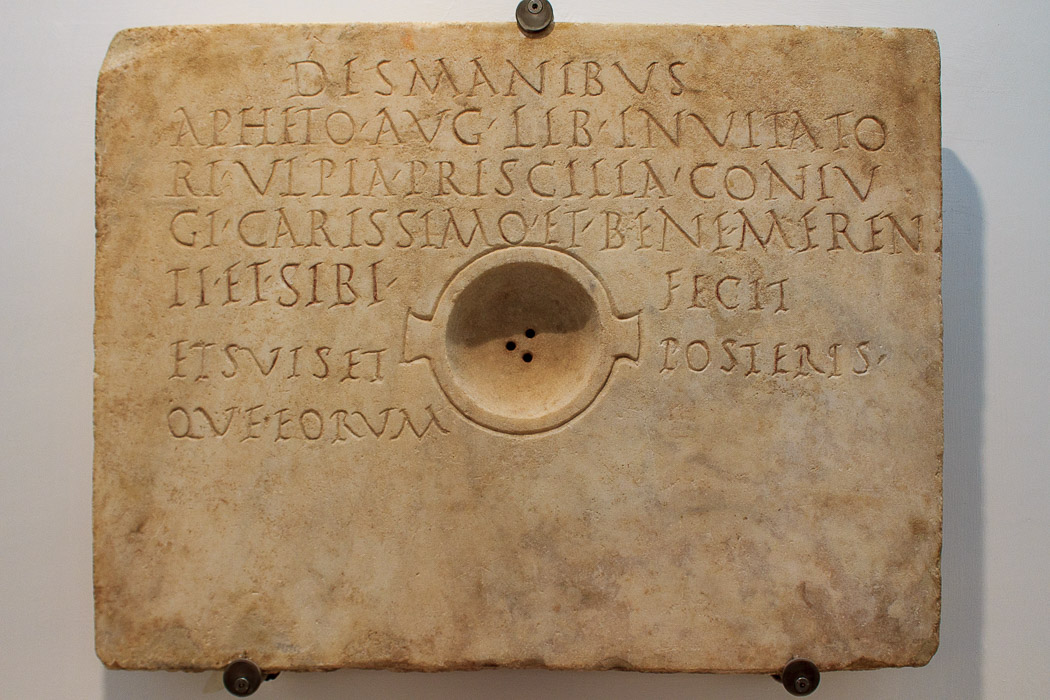 DIS MANIBVS
APHETO·AVG·LIB·INVITATO
RI·VLPIA·PRISCILLA·CONIV
GI·CARISSIMO·ET·BENE·MEREN
TI·ET·SIBI· FECIT
ET SVIS ET POSTERIS·
QVE·EORVM